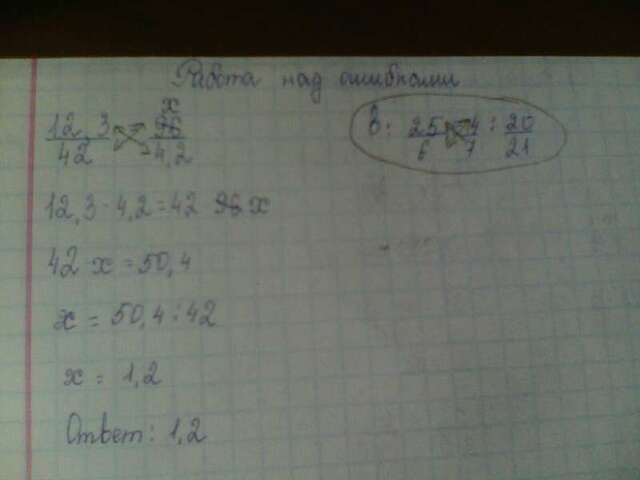 Работа над ошибками
12,3/42 = x/4,2
12,3 · 4,2 = 42 x
42 x = 50,4
x = 50,4 : 42
x = 1,2
Ответ: 1,2
в: 25/6 4/7 : 20/21